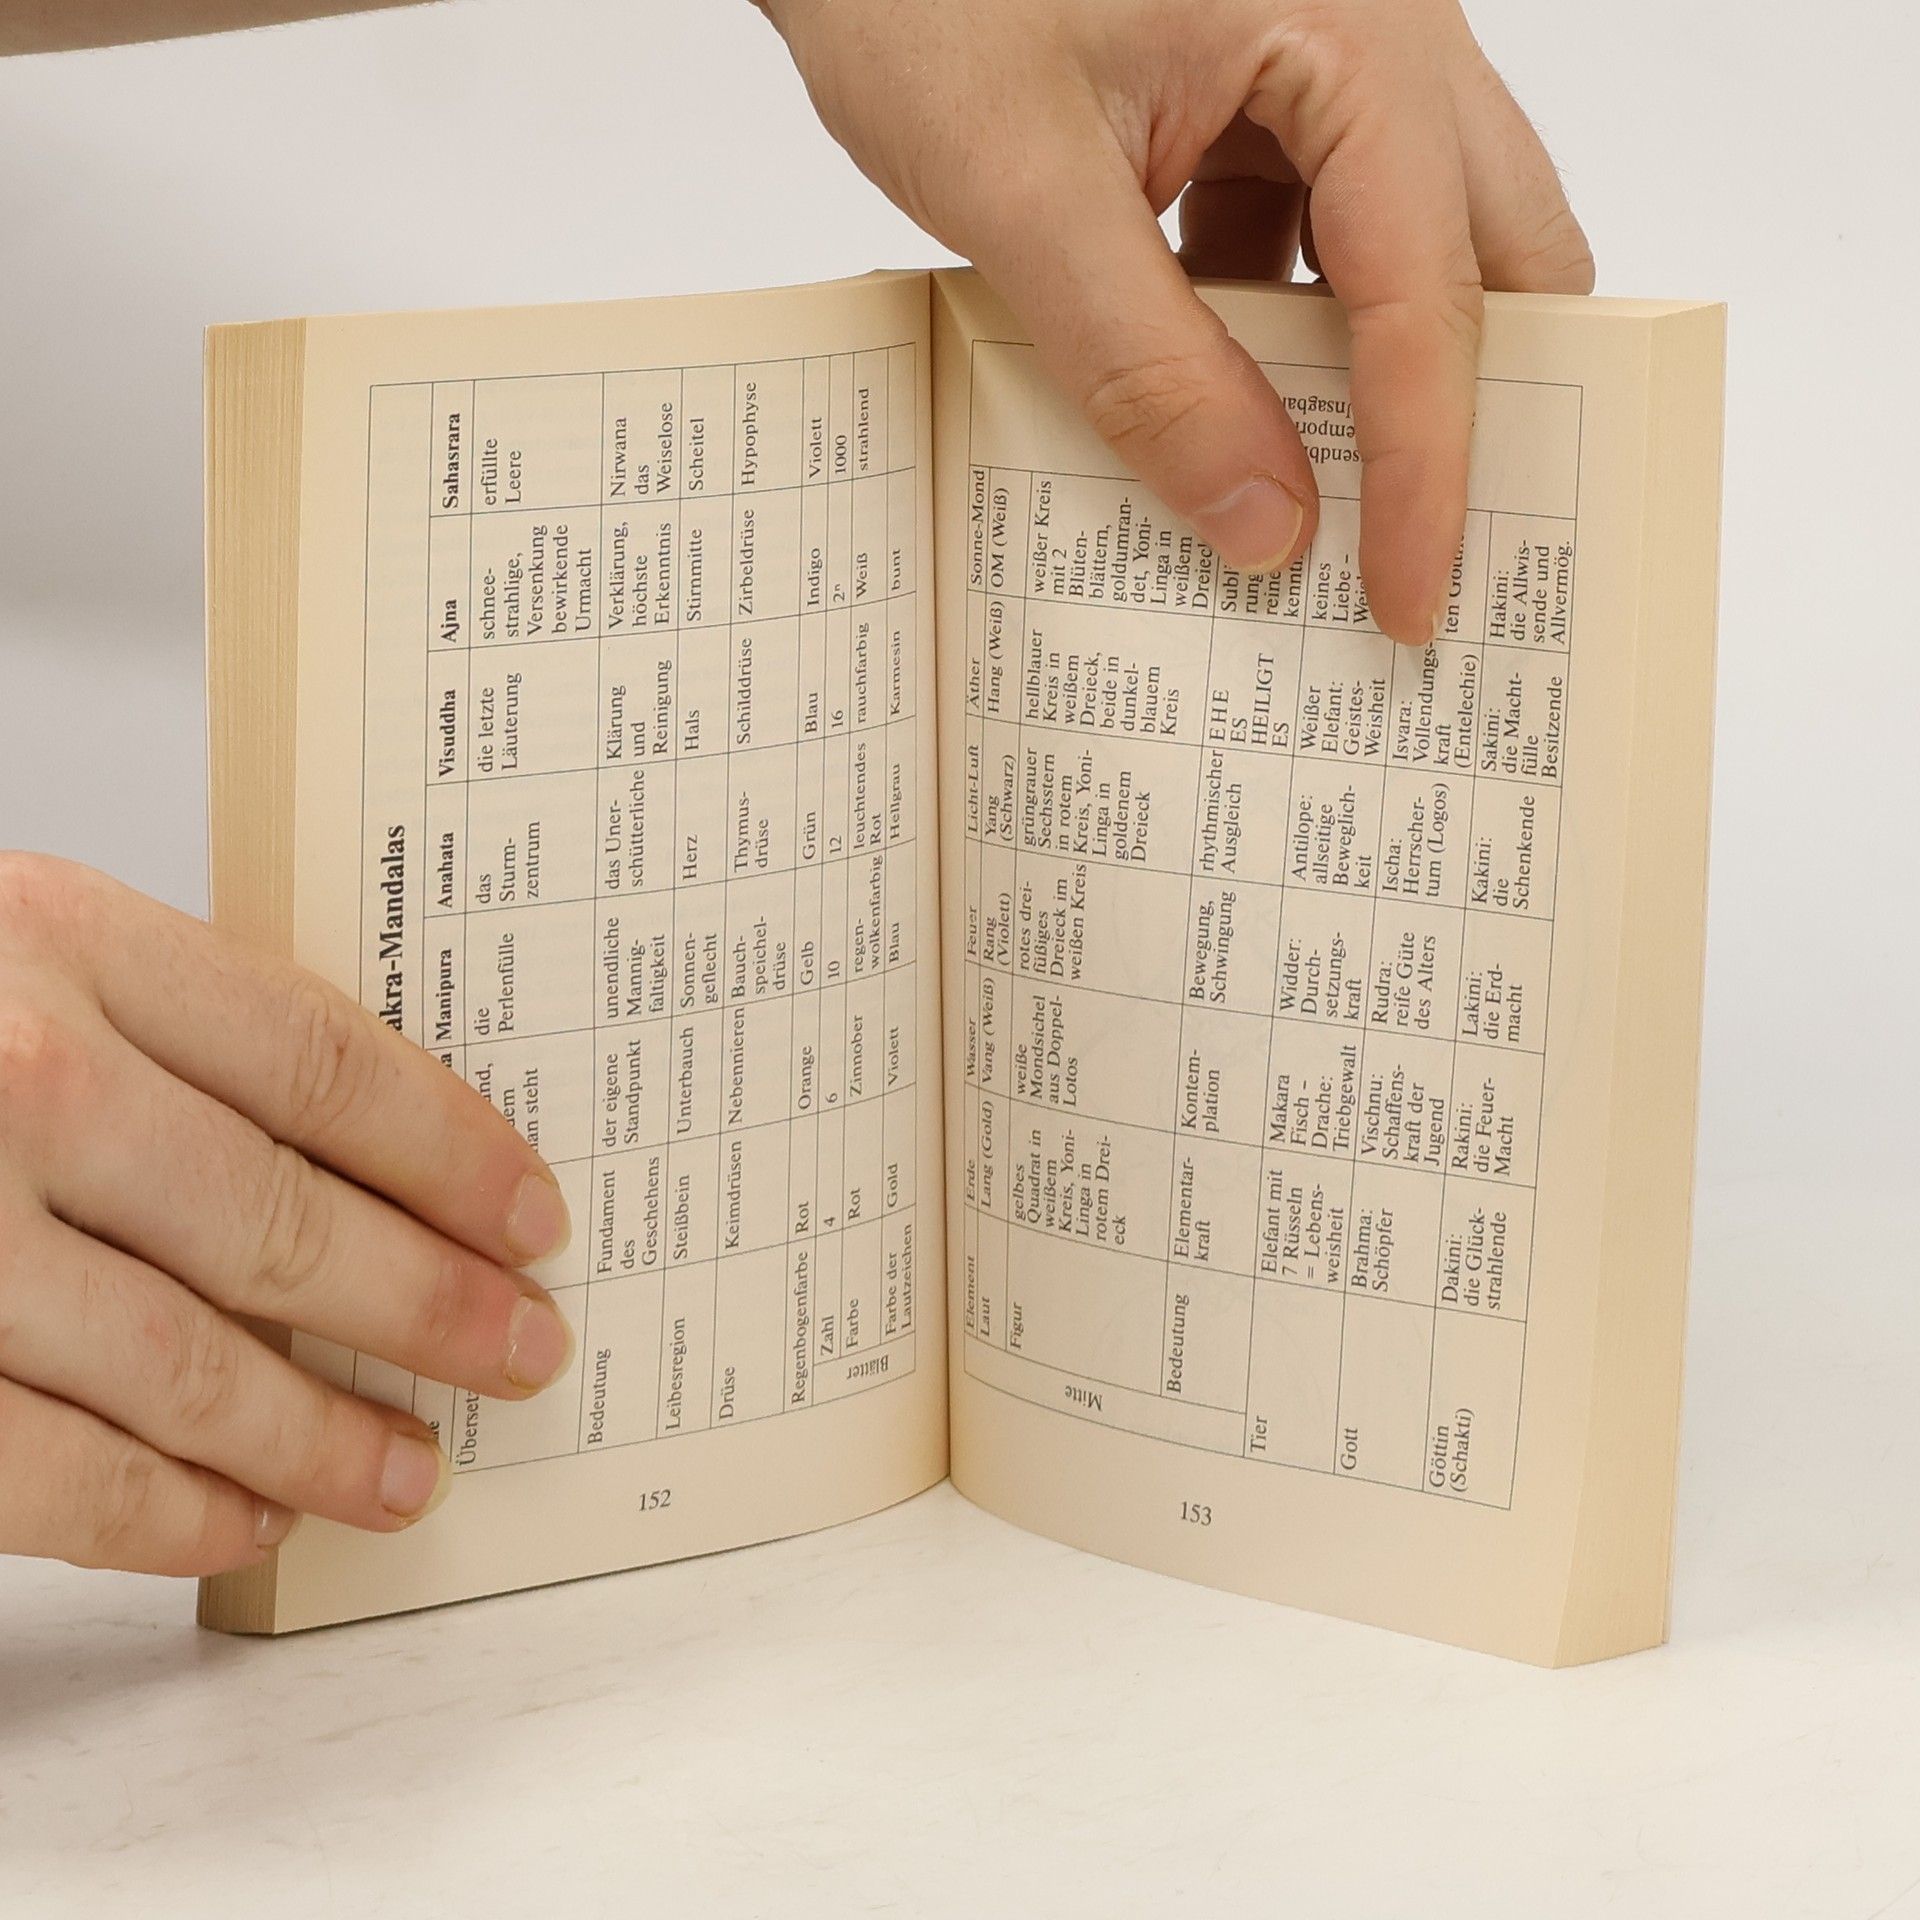 akra-Mandalas
Manipura
Anahata
Visuddha
Ajna
Sahasrara
man steht
die
Perlenfülle
das
Sturm-
zentrum
die letzte
Läuterung
schnee-
strahlige,
Versenkung
bewirkende
Urmacht
erfüllte
Leere
Bedeutung
Fundament
des
Geschehens
der eigene
Standpunkt
unendliche
Mannig-
faltigkeit
das Uner-
schütterliche
Klärung
und
Reinigung
Verklärung,
höchste
Erkenntnis
Nirwana
das
Weiselose
Leibesregion
Steißbein
Unterbauch
Sonnen-
geflecht
Herz
Hals
Stirnmitte
Scheitel
Drüse
Keimdrüsen
Nebennieren
Bauch-
speichel-
drüse
Thymus-
drüse
Schilddrüse
Zirbeldrüse
Hypophyse
Regenbogenfarbe
Rot
Orange
Gelb
Grün
Blau
Indigo
Violett
Blätter
Zahl
4
6
10
12
16
2ⁿ
1000
Farbe
Rot
Zinnober
regen-
wolkenfarbig
leuchtendes
Rot
rauchfarbig
Weiß
strahlend
Farbe der
Lautzeichen
Gold
Violett
Blau
Hellgrau
Karmesin
bunt
152
Mitte
Element
Erde
Wasser
Feuer
Licht-Luft
Äther
Sonne-Mond
Laut
Lang (Gold)
Vang (Weiß)
Rang
(Violett)
Yang
(Schwarz)
Hang (Weiß)
OM (Weiß)
Figur
gelbes
Quadrat in
weißem
Kreis, Yoni-
Linga in
rotem Drei-
eck
weiße
Mondsichel
aus Doppel-
Lotos
rotes drei-
füßiges
Dreieck im
weißen Kreis
grüngrauer
Sechsstern
in rotem
Kreis, Yoni-
Linga in
goldenem
Dreieck
hellblauer
Kreis in
weißem
Dreieck,
beide in
dunkel-
blauem
Kreis
weißer Kreis
mit 2
Blüten-
blättern,
goldumran-
det, Yoni-
Linga in
weißem
Dreieck
Bedeutung
Elementar-
kraft
Kontem-
plation
Bewegung,
Schwingung
rhythmischer
Ausgleich
EHE
ES
HEILIGT
ES
rung
reine
Tier
Elefant mit
7 Rüsseln
= Lebens-
weisheit
Makara
Fisch –
Drache:
Triebgewalt
Widder:
Durch-
setzungs-
kraft
Antilope:
allseitige
Beweglich-
keit
Weißer
Elefant:
Geistes-
Weisheit
keines
Liebe –
Gott
Brahma:
Schöpfer
Vischnu:
Schaffens-
kraft der
Jugend
Rudra:
reife Güte
des Alters
Ischa:
Herrscher-
tum (Logos)
Isvara:
Vollendungs-
kraft
(Entelechie)
Göttin
(Schakti)
Dakini:
die Glück-
strahlende
Rakini:
die Feuer-
Macht
Lakini:
die Erd-
macht
Kakini:
die
Schenkende
Sakini:
die Macht-
fülle
Besitzende
Hakini:
die Allwis-
sende und
Allvermög.
153